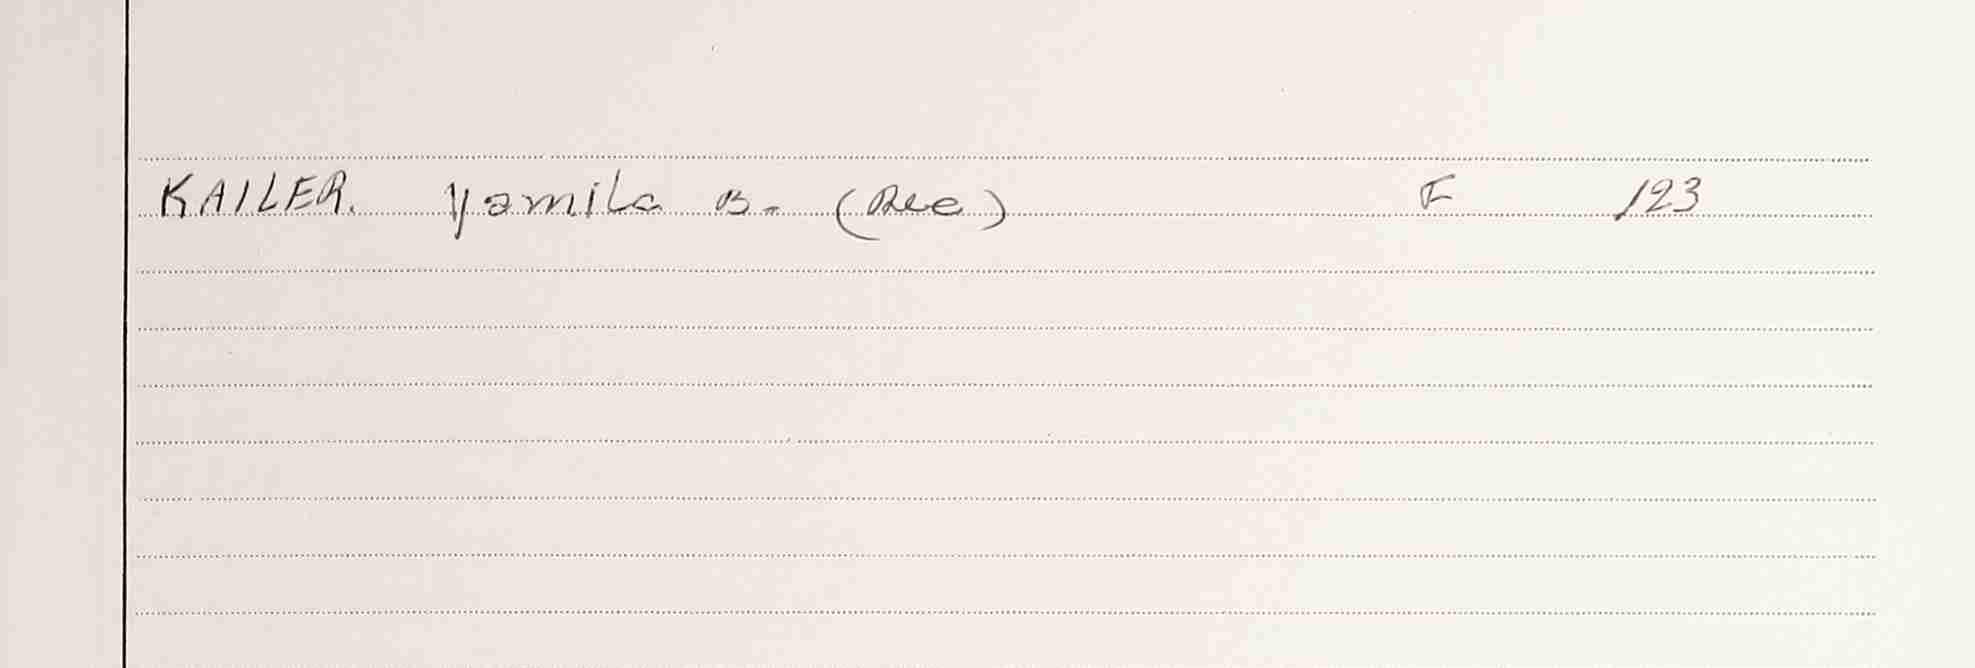 KAILER. Yamila B. (Rec) F 123